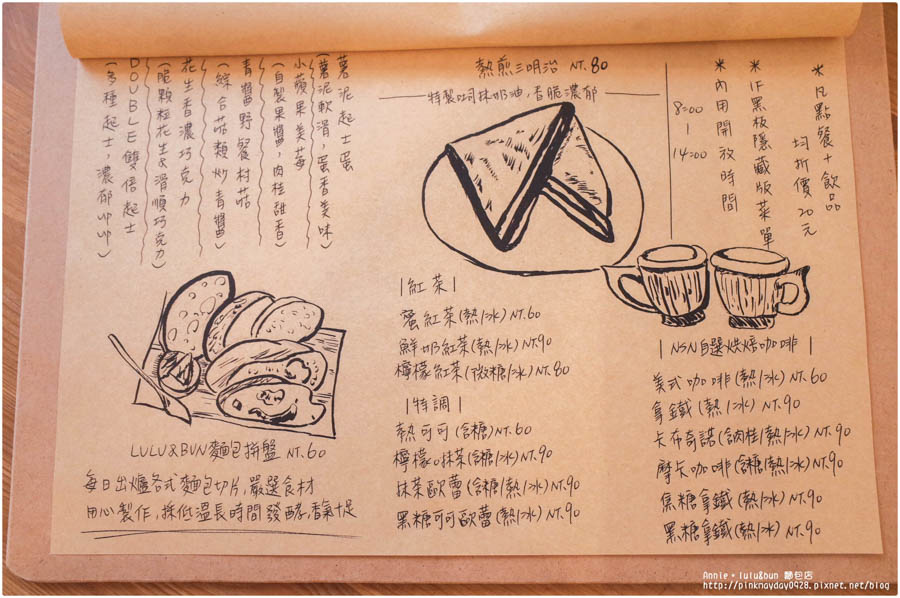 ※凡點餐+飲品
均折價20元
※1F黑板隱藏版菜單
※內用開放時間
8:00
|
14:00
熱煎三明治 NT.80
特製吐司抹奶油,香脆濃郁
薯泥起士蛋
(薯泥軟滑,蛋香美味)
小蘋果美莓
(自製果醬,肉桂甜香)
青醬野餐村菇
(綜合菇類炒青醬)
花生香濃巧克力
(脆顆粒花生&滑順巧克力)
DOUBLE雙倍起士
(多種起士,濃郁up up)
LULU&BUN麵包拼盤 NT.60
每日出爐各式麵包切片,嚴選食材
用心製作,採低溫長時間發酵,香氣十足
|紅茶|
蜜紅茶(熱/冰) NT.60
鮮奶紅茶(熱/冰) NT.90
檸檬紅茶(微糖/冰) NT.80
|特調|
熱可可(含糖) NT.60
檸檬。抹茶(含糖/冰) NT.90
抹茶歐蕾(含糖/熱/冰) NT.90
黑糖可可歐蕾(熱/冰) NT.90
|NSN自選烘焙咖啡|
美式咖啡(熱/冰) NT.60
拿鐵(熱/冰) NT.90
卡布奇諾(含肉桂/熱/冰) NT.90
摩卡咖啡(含糖/熱/冰) NT.90
焦糖拿鐵(熱/冰) NT.90
黑糖拿鐵(熱/冰) NT.90
Annie。lulu&bun 麵包店
http://pinkmayday0928.pixnet.net/blog